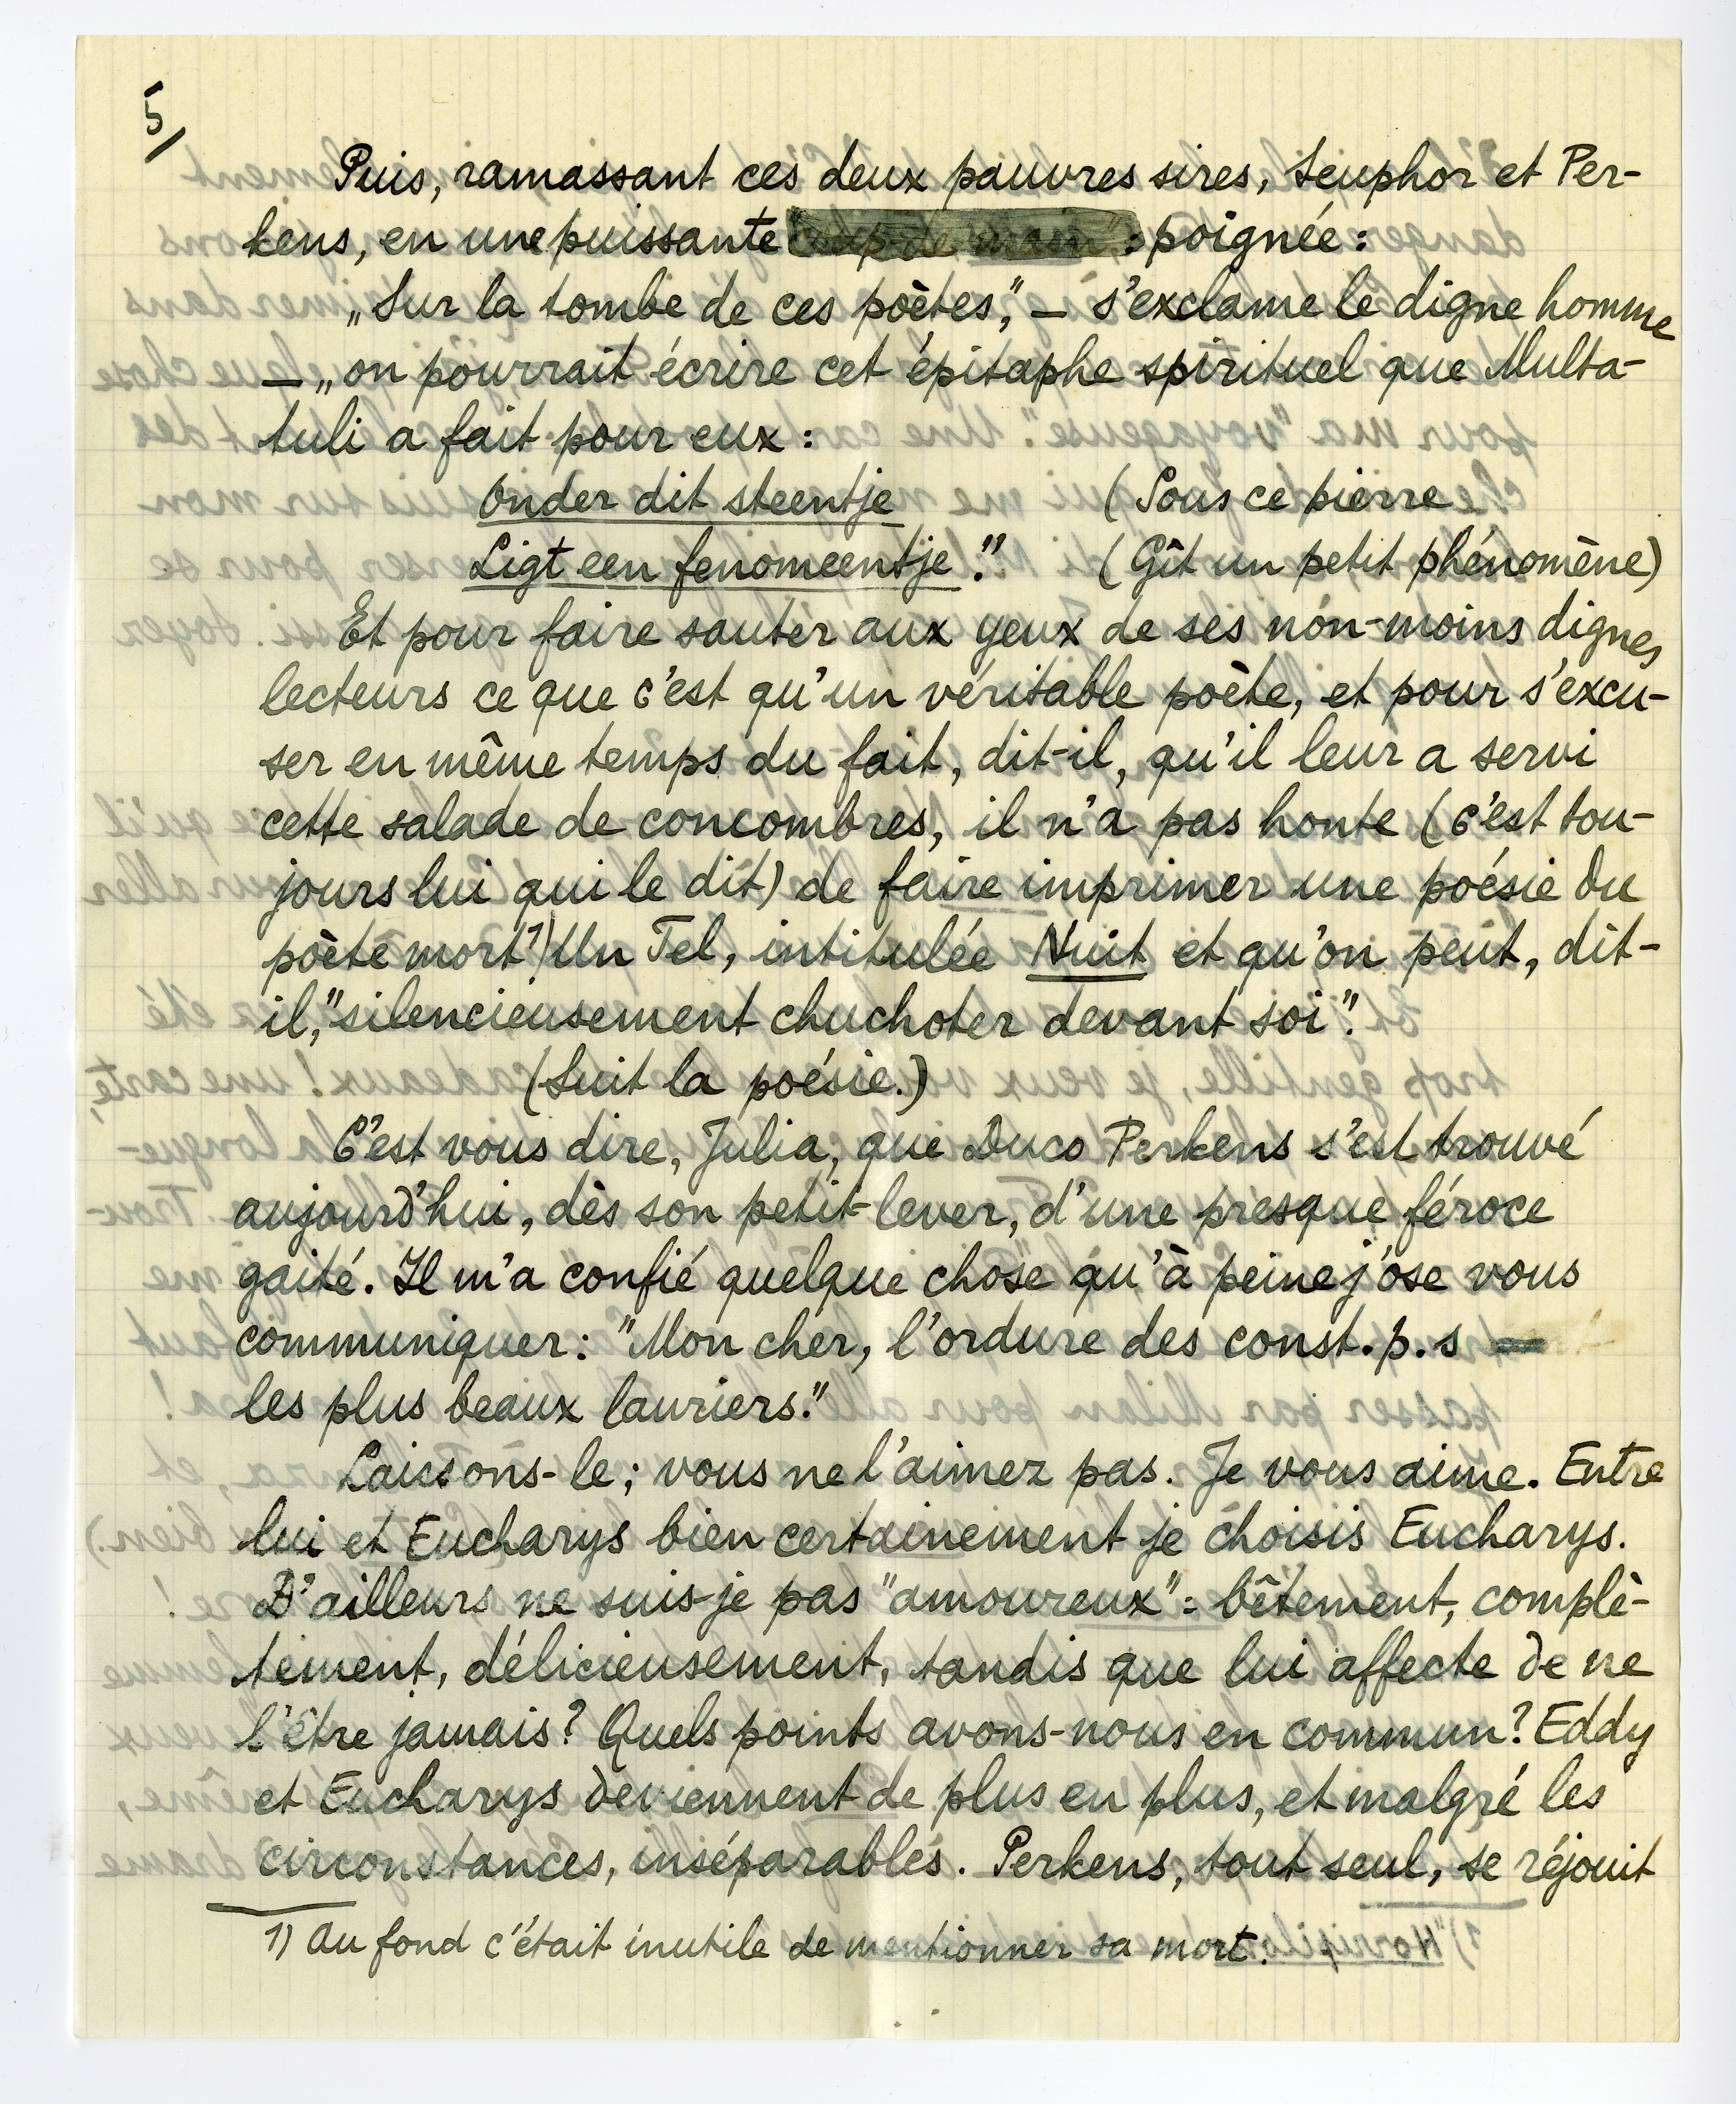 5/
Puis, ramassant ces deux pauvres sires, Seuphor et Per-
kens, en une puissante coup de main : poignée :
„Sur la tombe de ces poètes", — s'exclame le digne homme
— „on pourrait écrire cet épitaphe spirituel que Multa-
tuli a fait pour eux :
Onder dit steentje (Sous ce pierre
Ligt een fenomeentje." (Gît un petit phénomène)
Et pour faire sauter aux yeux de ses non-moins dignes
lecteurs ce que c'est qu'un véritable poète, et pour s'excu-
ser en même temps du fait, dit-il, qu'il leur a servi
cette salade de concombres, il n'a pas honte (c'est tou-
jours lui qui le dit) de faire imprimer une poésie du
poète mort 1) Un Tel, intitulée Nuit et qu'on peut, dit-
il, "silencieusement chuchoter devant soi".
(Suit la poésie.)
C'est vous dire, Julia, que Duco Perkens s'est trouvé
aujourd'hui, dès son petit-lever, d'une presque féroce
gaité. Il m'a confié quelque chose qu'à peine j'ose vous
communiquer : "Mon cher, l'ordure des const.p.s
les plus beaux lauriers."
Laissons-le ; vous ne l'aimez pas. Je vous aime. Entre
lui et Eucharys bien certainement je choisis Eucharys.
D'ailleurs ne suis-je pas "amoureux" : bêtement, complè-
tement, délicieusement, tandis que lui affecte de ne
l'être jamais ? Quels points avons-nous en commun ? Eddy
et Eucharys deviennent de plus en plus, et malgré les
circonstances, inséparables. Perkens, tout seul, se réjouit
1) Au fond c'était inutile de mentionner sa mort.